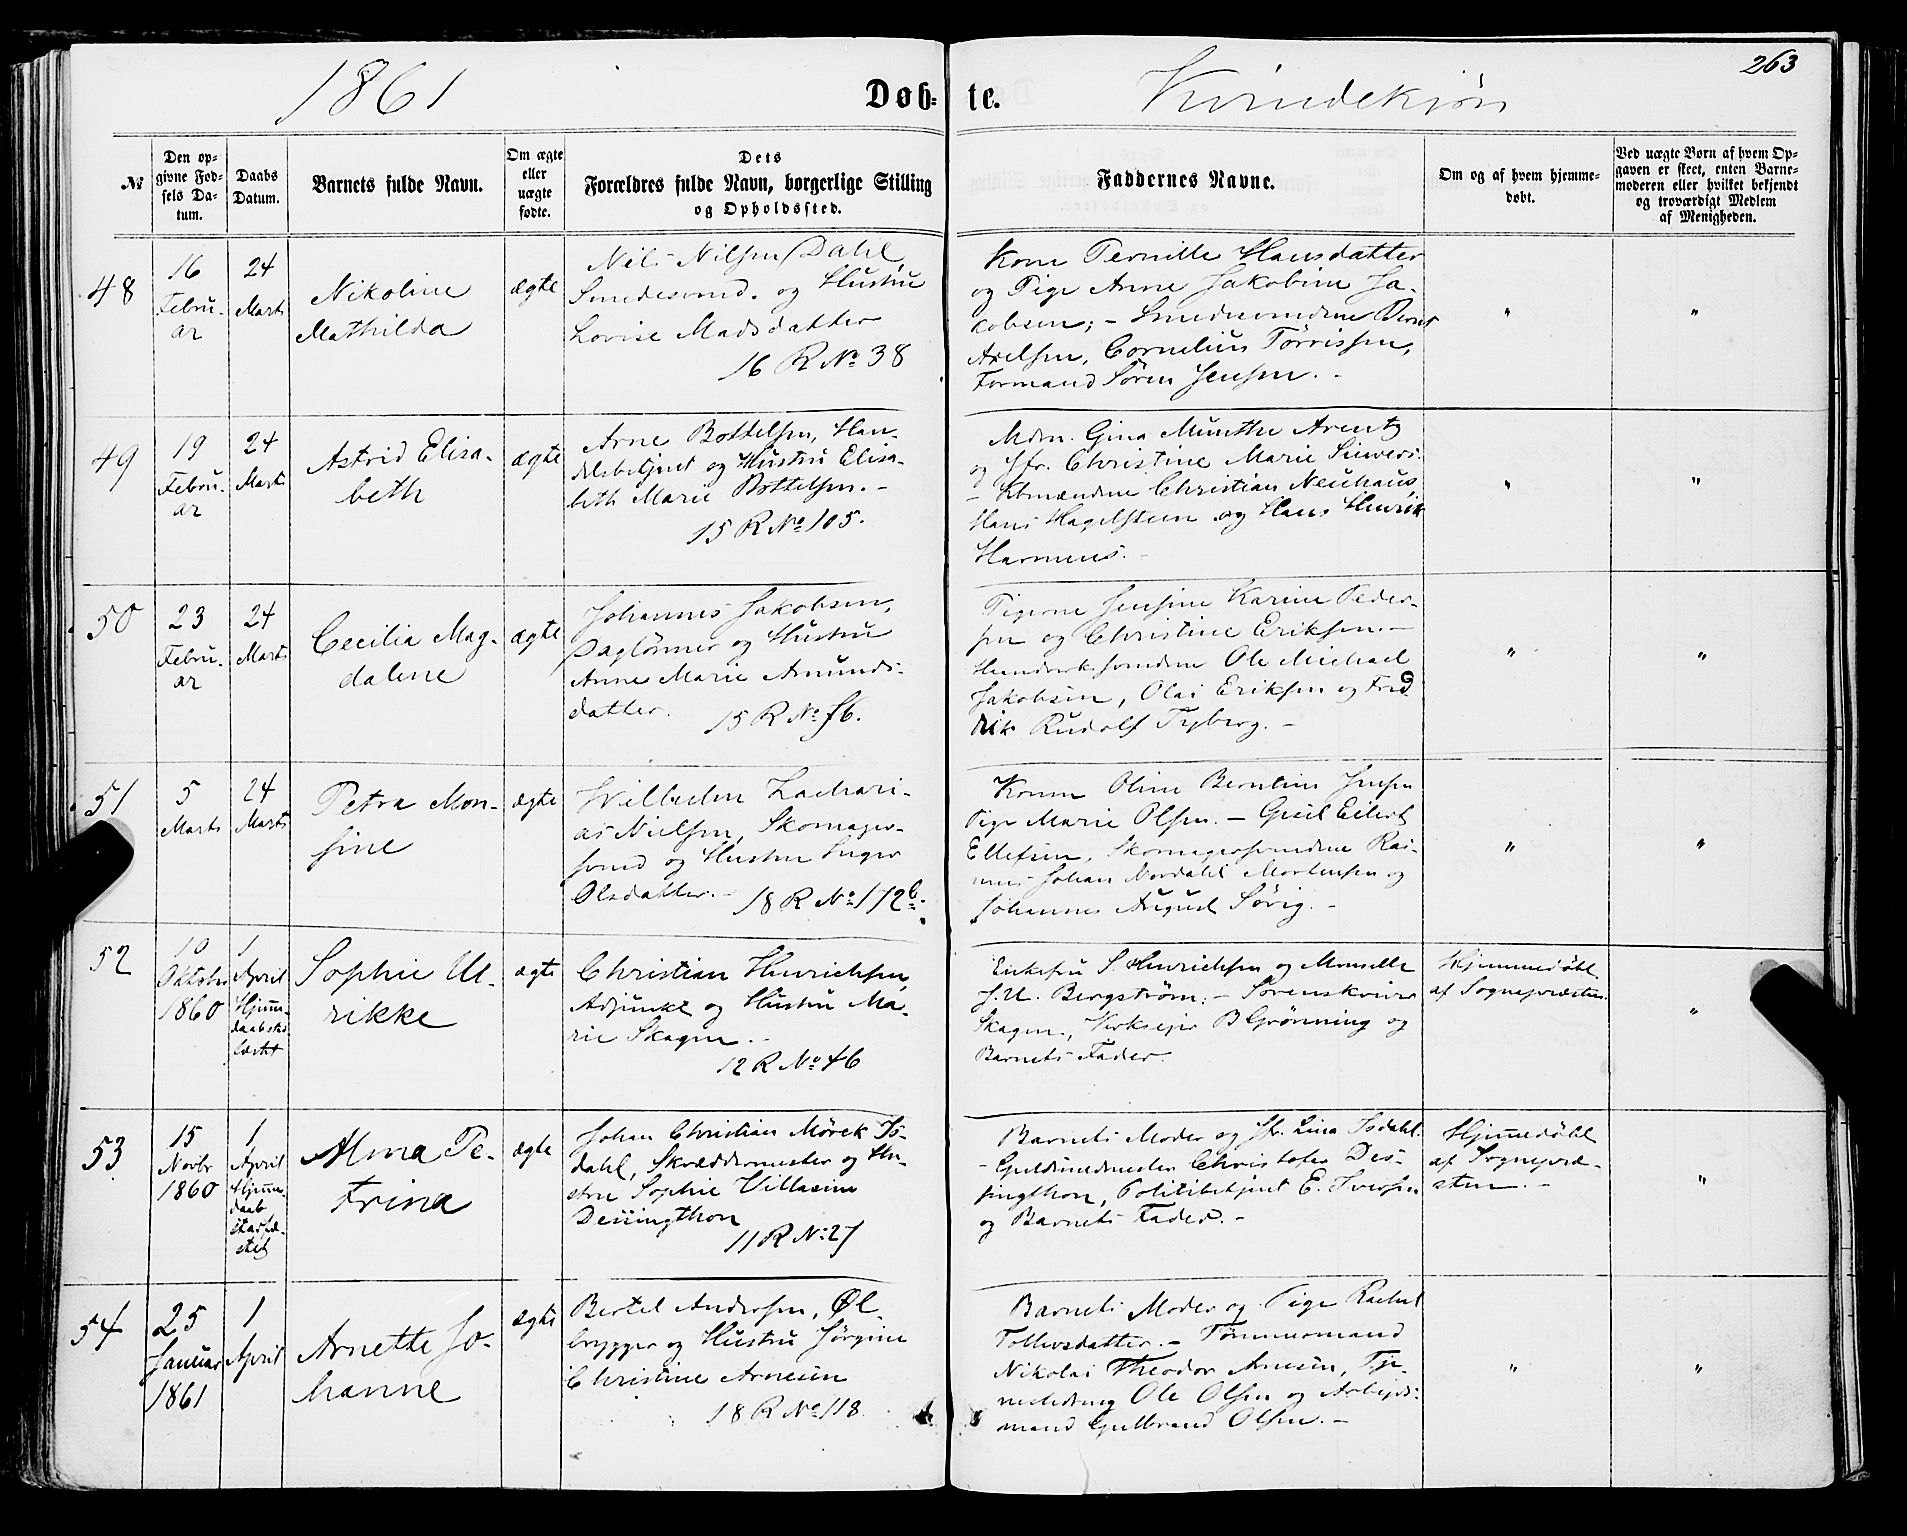 263
1861
Døb-
te.
Kvindekjøn
№
Den op-
givne Fød-
sels Da-
tum.
Daabs
Datum.
Barnets fulde Navn.
Om ægte
eller
uægte
fødte.
Dets
Forældres fulde Navn, borgerlige Stilling
og Opholdssted.
Faddernes Navne.
Om og af hvem hjemme-
døbt.
Ved uægte Børn af hvem Op-
gaven er skeet, enten Barne-
moderen eller hvilket bekjendt
og troværdigt Medlem
af Menigheden.
48
16
Febru-
ar
24
Marts
Nikoline
Mathilda
ægte
Nils Nilsen Dahl,
Smedesvend. og Hustru
Lovise Madsdatter
16 R № 38
Kone Pernille Hansdatter
og Pige Anne Jakobine Ja-
cobsen; - Smedsvendene Bernt
Axelsen, Cornelius Törrissen,
Formand Søren Jensen. -
"
"
49
19
Febru-
ar
24
Marts
Astrid Elisa-
beth
ægte
Arne Bottelsen, Han-
delsbetjent og Hustru Elisa-
beth Marie Bottelsen. -
15 R № 105.
Mdm. Gina Munthe Arentz
og Jfr. Christine Marie Siewers.
- Kbmændene Christian Neuhaus,
Hans Hagelsteen og Hans Henrik
Harmens. -
"
"
50
23
Febru-
ar
24
Marts
Cecilia Mag-
dalene
ægte
Johannes Jakobsen,
Daglønner og Hustru
Anne Marie Amunds-
datter. 15 R № 56.
Pigerne Jensine Karine Peder-
sen og Christine Eriksen. -
Haandverkssvendene Ole Michael
Jakobsen, Olai Eriksen og Fred
rik Rudolf Tyberg. -
"
"
51
5
Marts
24
Marts
Petra Mon-
sine
ægte
Wilhelm Zachari-
as Nielsen, Skomager-
svend og Hustru Inger
Olsdatter. - 18 R № 172 b.
Konen Oline Berntine Jensen
Pige Marie Olsen. - Gseil Eilert
Ellefsen, Skomagersvendene Ras-
mus Johan Nordahl Mortensen og
Johannes August Sørig. -
"
"
52
10
Oktober
1860
1
April
Hjemme-
daab sta-
fæstet
Sophie Ul-
rikke
ægte
Christian Henrichsen,
Adjunkt og Hustru Ma-
rie Skagen. -
12 R № 46
Enkefru S. Henrichsen og Mamselle
J. U. Bergstrøm. - Sorenskriver
Skagen, Verkseier B Grønning og
Barnets Fader.
Hjemmedøbt
af Sognepræsten.
"
53
15
Novbr
1860
1
April
Hjemme-
daab
stadfæ-
stet
Alma Pe-
trina
ægte
Johan Christian Mörck Is-
dahl, Skræddermester og Hu-
stru Sophie Villasine
Dessingthon
11 R № 27
Barnets Moder og Jfr. Lina Isdahl.
- Guldsmedmester Christofer Des-
singthon, Politibetjent E. Iversen
og Barnets Fader. -
Hjemmedöbt
af Sognepræ-
sten. -
"
54
25
Januar
1861
1
April
Arnette Jo-
hanne
ægte
Bertel Andersen, Øl-
brygger og Hustru Jørgine
Christine Arnesen
18 R № 118
Barnets Moder og Pige Rachel
Tollevsdatter. - Tømmermand
Nikolai Theodor Arnesen, Tje-
nestedreng Ole Olsen og Arbejds-
mand Gulbrand Olsen. -
"
"